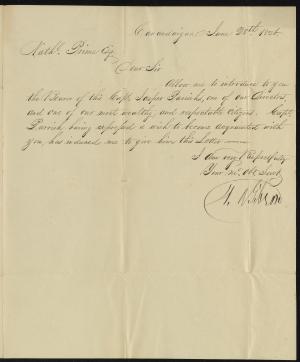 Canandaigua June 28th 1826
Nathl. Prime Esq
Dear Sir
Allow me to introduce to you
the Bearer of this Capt. Jasper Parrish, one of our Directors,
and one of our most wealthy and respectable citizens. Capt.
Parrish having expressed a wish to become acquainted with
you, has induced me to give him this Letter
I am very Respectfully
Your Mo. Obt Servt
H. B. Gibson